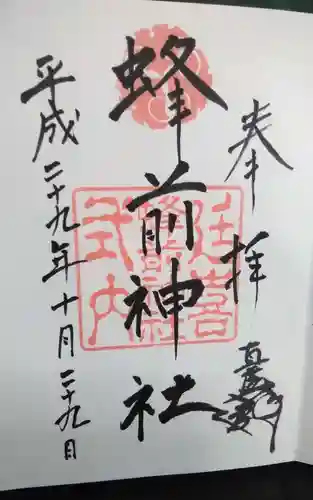 奉拝
蜂前神社
平成二十九年十月二十九日
式内